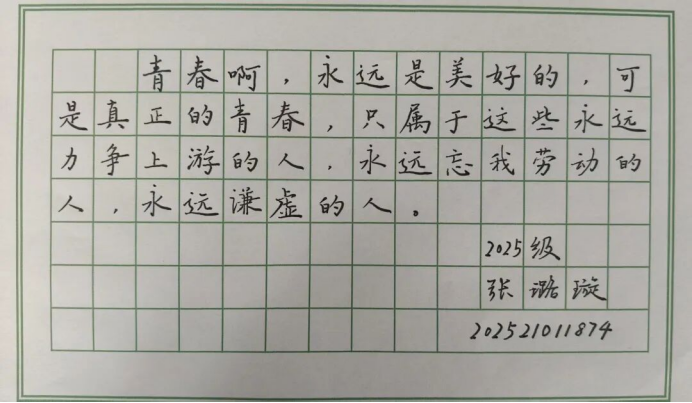 青春啊，永远是美好的，可
是真正的青春，只属于这些永远
力争上游的人，永远忘我劳动的
人，永远谦虚的人。
2025级
张璐璇
202521011874